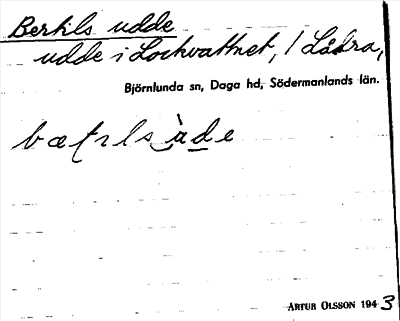 Berkls udde
udde i Lockvattnet, / Lådra,
Björnlunda sn, Daga hd, Södermanlands län.
bætrlsùde
ARTUR OLSSON 1943